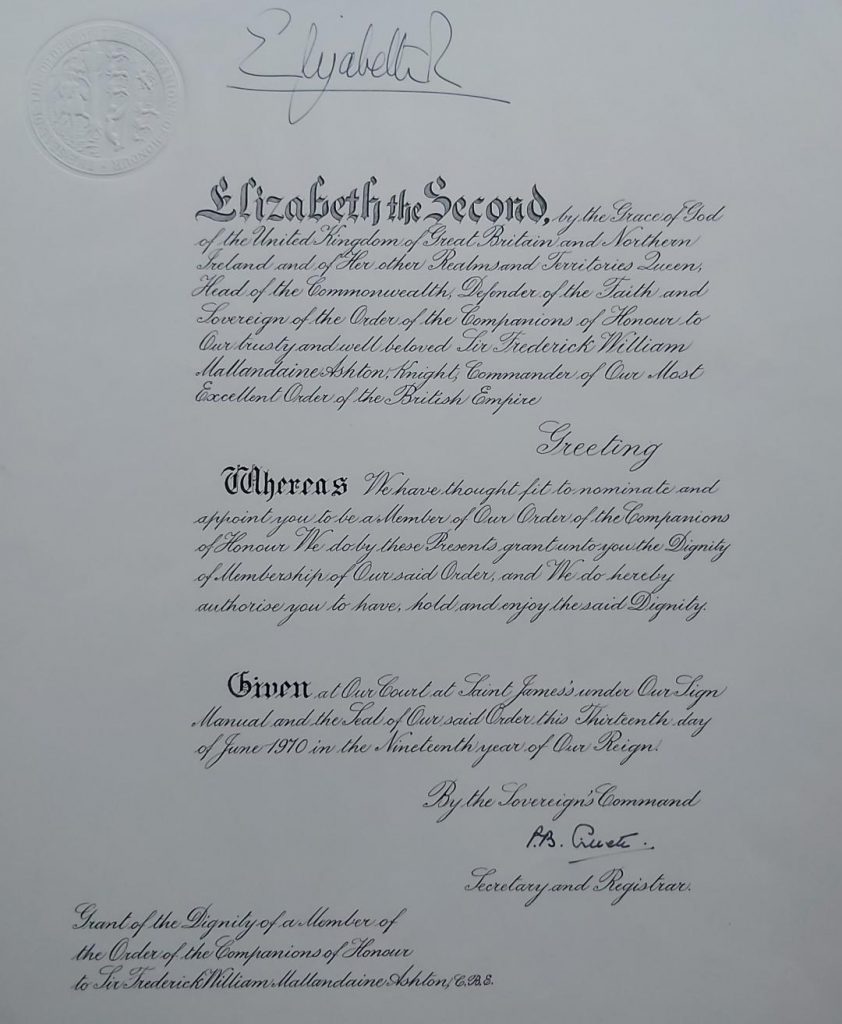 Elizabeth R
Elizabeth the Second, by the Grace of God
of the United Kingdom of Great Britain and Northern
Ireland and of Her other Realms and Territories Queen,
Head of the Commonwealth, Defender of the Faith and
Sovereign of the Order of the Companions of Honour to
Our trusty and well beloved Sir Frederick William
Mallandaine Ashton, Knight, Commander of Our Most
Excellent Order of the British Empire
Greeting
Whereas We have thought fit to nominate and
appoint you to be a Member of Our Order of the Companions
of Honour We do by these Presents grant unto you the Dignity
of Membership of Our said Order, and We do hereby
authorise you to have, hold and enjoy the said Dignity.
Given at Our Court at Saint James's under Our Sign
Manual and the Seal of Our said Order this Thirteenth day
of June 1970 in the Nineteenth year of Our Reign.
By the Sovereign's Command
P.B.
Secretary and Registrar.
Grant of the Dignity of a Member of
the Order of the Companions of Honour
to Sir Frederick William Mallandaine Ashton, C.B.E.